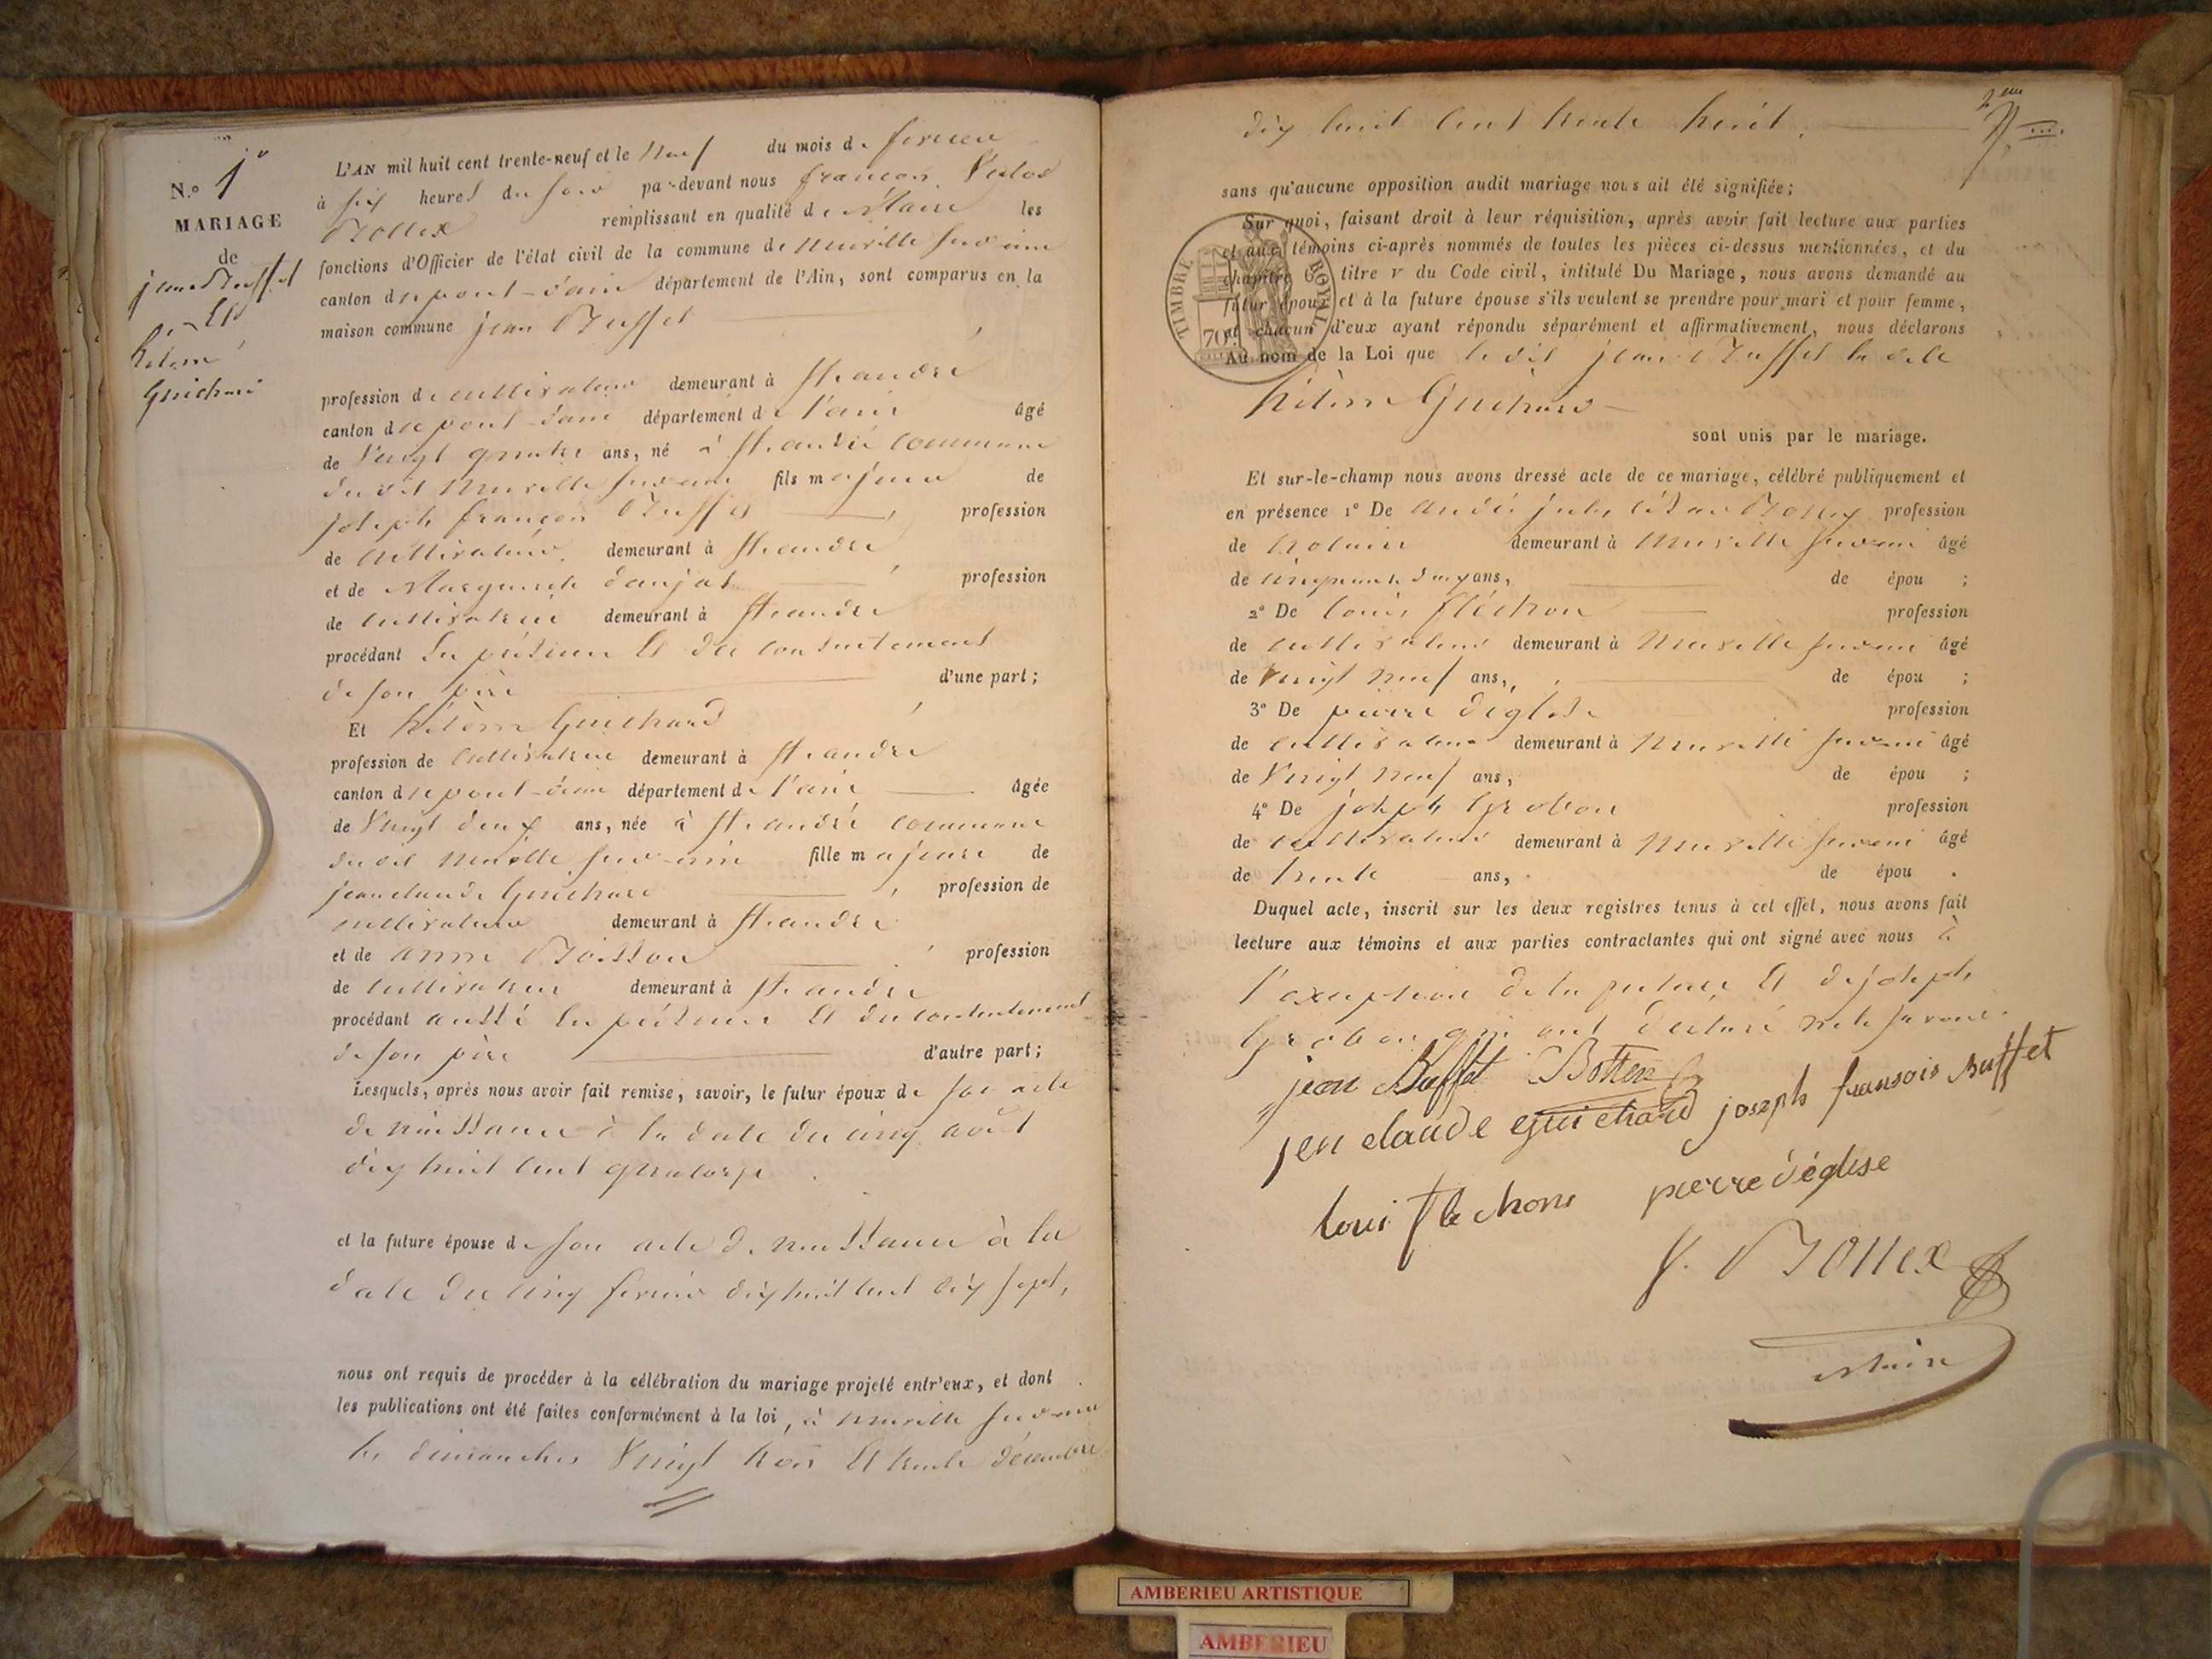 N.º 1º
MARIAGE
de
jean Buffet
Et
hélène
Guichard
L'AN mil huit cent trente-neuf et le Neuf du mois de fevrier
à six heures du soir par-devant nous francois Victor
Bollex remplissant en qualité de Maire les
fonctions d'Officier de l'état civil de la commune de neuville sur ain
canton de pont-d'ain département de l'Ain, sont comparus en la
maison commune jean Buffet
profession de cultivateur demeurant à St andré
canton de pont-d'ain département de l'ain âgé
de Vingt quatre ans, né à St andré commune
du dit neuville sur ain fils majeur de
joseph françois Buffet profession
de cultivateur demeurant à St andré
et de Marguerite profession
de cultivatrice demeurant à St andré
procédant du consentement
de son père d'une part;
Et hélène Guichard
profession de cultivatrice demeurant à St andré
canton de pont-d'ain département de l'ain âgée
de Vingt deux ans, née à St andré commune
du dit neuville sur ain fille majeure de
jean claude Guichard profession de
cultivateur demeurant à St andré
et de anne Boisson profession
de cultivatrice demeurant à St andré
procédant aussi présence Et du consentement
de son père d'autre part;
Lesquels, après nous avoir fait remise, savoir, le futur époux de son acte
de naissance à la date du cinq août
dix huit cent quatorze
et la future épouse de son acte de naissance à la
date du cinq fevrier dix huit cent dix sept,
nous ont requis de procéder à la célébration du mariage projeté entr'eux, et dont
les publications ont été faites conformément à la loi, à neuville sur ain
les dimanches Vingt trois Et trente décembre
dix huit cent trente huit.
sans qu'aucune opposition audit mariage nous ait été signifiée;
Sur quoi, faisant droit à leur réquisition, après avoir fait lecture aux parties
et aux témoins ci-après nommés de toutes les pièces ci-dessus mentionnées, et du
chapitre 6, titre v du Code civil, intitulé Du Mariage, nous avons demandé au
futur époux et à la future épouse s'ils veulent se prendre pour mari et pour femme,
et chacun d'eux ayant répondu séparément et affirmativement, nous déclarons
Au nom de la Loi que le dit jean Buffet la dite
hélène Guichard
sont unis par le mariage.
TIMBRE ROYAL
70
Et sur-le-champ nous avons dressé acte de ce mariage, célébré publiquement et
en présence 1º De André jules profession
de notaire demeurant à neuville sur ain âgé
de cinquante deux ans, de épou ;
2º De louis fléchon profession
de cultivateur demeurant à neuville sur ain âgé
de Vingt neuf ans, de épou ;
3º De pierre déglise profession
de cultivateur demeurant à neuville sur ain âgé
de Vingt neuf ans, de épou ;
4º De joseph Grobon profession
de cultivateur demeurant à neuville sur ain âgé
de trente ans, de épou .
Duquel acte, inscrit sur les deux registres tenus à cet effet, nous avons fait
lecture aux témoins et aux parties contractantes qui ont signé avec nous à
l'exception de la future Et de joseph
Grobon qui ont déclaré ne le savoir.
jean Buffet
jen claude guichard joseph fransois Buffet
loui fléchon pierre déglise
V. Bollex
Maire
AMBERIEU ARTISTIQUE
AMBERIEU